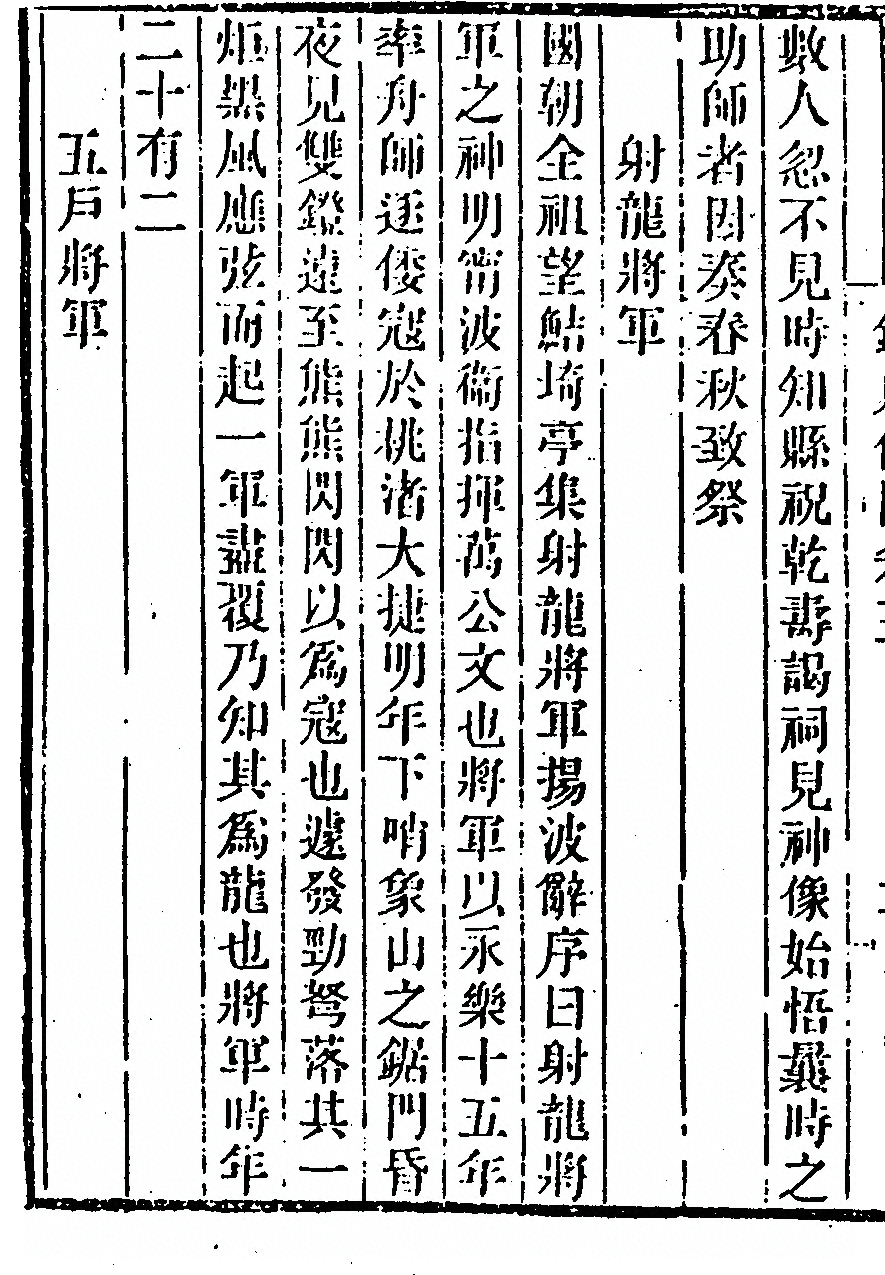 數人忽不見時知縣祝乾壽謁祠見神像始悟曩時之
助師者因奏春秋致祭
射龍將軍
國朝全祖望鮚埼亭集射龍將軍揚波辭序曰射龍將
軍之神明甯波衞指揮萬公文也將軍以永樂十五年
率舟師逐倭寇於桃渚大捷明年下哨象山之鋸門昏
夜見雙鐙遠至熊熊閃閃以爲寇也遽發勁弩落其一
炬黑風應弦而起一軍盡覆乃知其爲龍也將軍時年
二十有二
五戶將軍